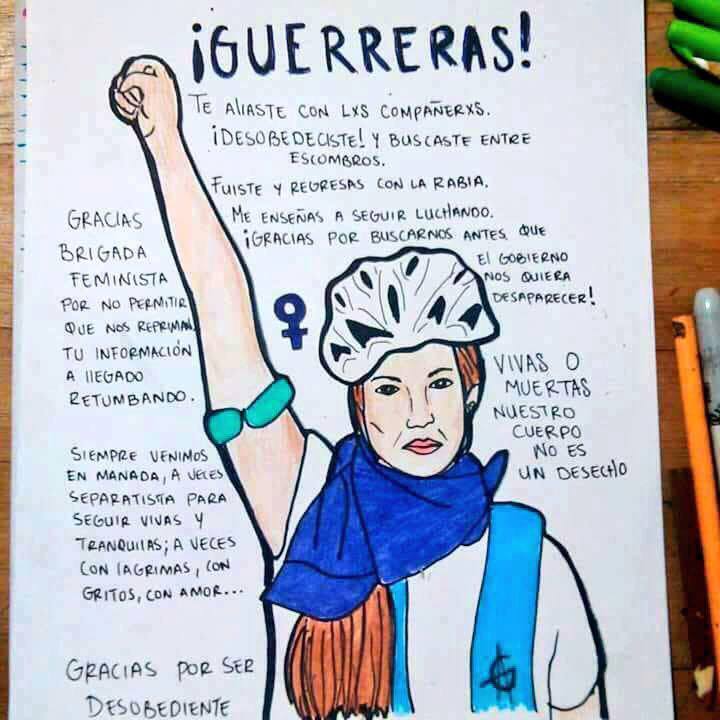 ¡GUERRERAS!
TE ALIASTE CON LXS COMPAÑERXS.
¡DESOBEDECISTE! Y BUSCASTE ENTRE
ESCOMBROS.
FUISTE Y REGRESAS CON LA RABIA.
ME ENSEÑAS A SEGUIR LUCHANDO.
¡GRACIAS POR BUSCARNOS ANTES QUE
EL GOBIERNO
NOS QUIERA
DESAPARECER!
GRACIAS
BRIGADA
FEMINISTA
POR NO PERMITIR
QUE NOS REPRIMAN
TU INFORMACIÓN
A LLEGADO
RETUMBANDO.
VIVAS O
MUERTAS
NUESTRO
CUERPO
NO ES
UN DESECHO
SIEMPRE VENIMOS
EN MANADA, A VECES
SEPARATISTA PARA
SEGUIR VIVAS Y
TRANQUILAS; A VECES
CON LAGRIMAS, CON
GRITOS, CON AMOR...
GRACIAS POR SER
DESOBEDIENTE